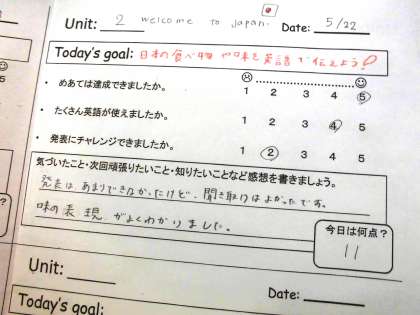 Unit: 2 welcome to Japan. Date: 5/22
Today's goal: 日本の食べ物や味を英語で伝えよう!
・ めあては達成できましたか。 1 2 3 4 5
・ たくさん英語が使えましたか。 1 2 3 4 5
・ 発表にチャレンジできましたか。 1 2 3 4 5
気づいたこと・次回頑張りたいこと・知りたいことなど感想を書きましょう。
発表は、あまりできなかったけど、聞き取りはよかったです。
味の表現がよくわかりました。
今日は何点?
11
Unit:
Date:
Today's goal: